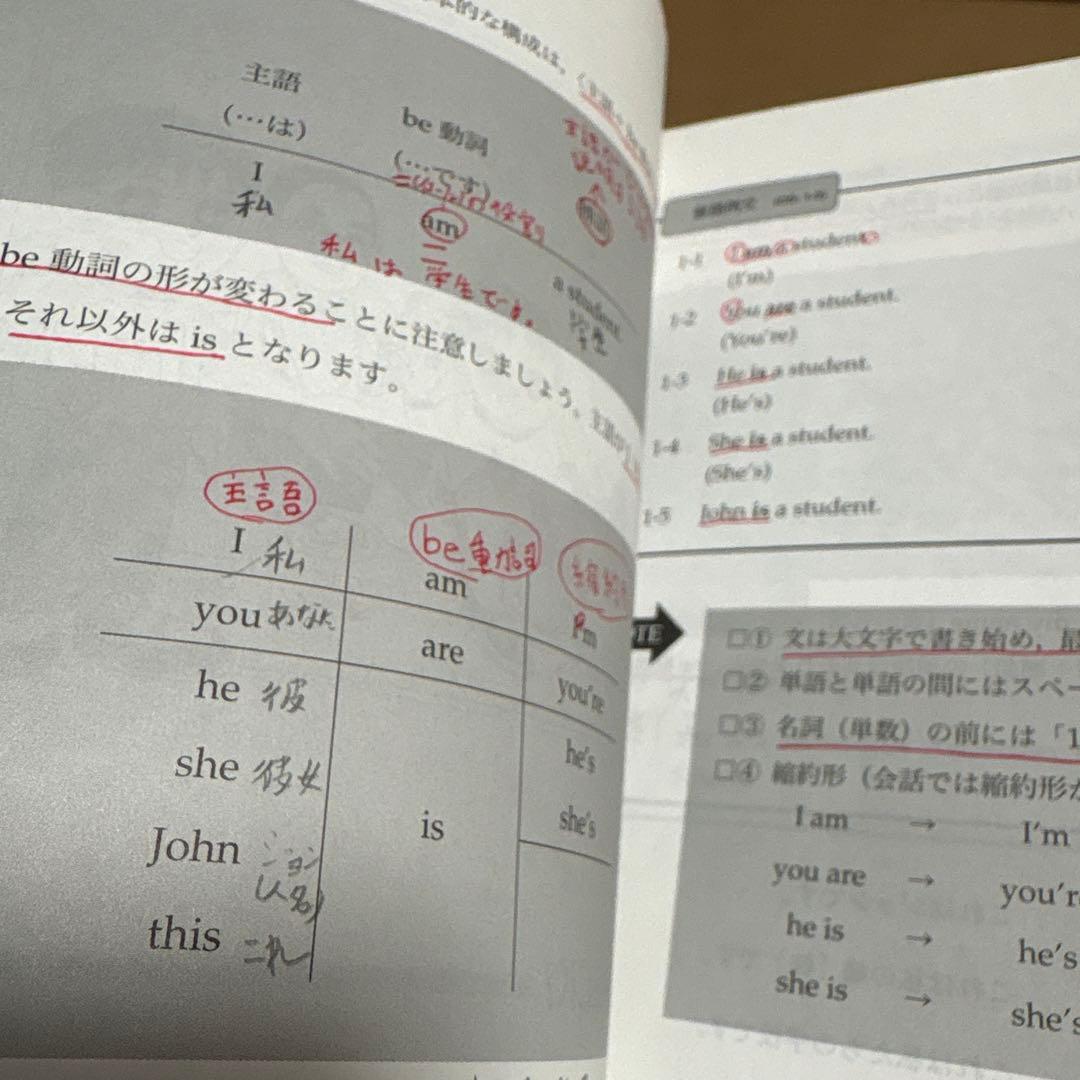 的な構成は,
主語
be 動詞
(…は)
(…です)
I
私
am
a student
学生
私は 学生です。
be 動詞の形が変わることに注意しましょう。主語が
それ以外は is となります。
主語
be動詞
縮約
I 私
am
I'm
you あなた
are
you're
he 彼
he's
she 彼女
is
she's
John ジョン
(人名)
this これ
1-1 I am a student.
(I'm)
1-2 You are a student.
(You're)
1-3 He is a student.
(He's)
1-4 She is a student.
(She's)
1-5 John is a student.
TE
□① 文は大文字で書き始め,最
□② 単語と単語の間にはスペー
□③ 名詞(単数)の前には「1
□④ 縮約形(会話では縮約形が
I am → I'm
you are → you'r
he is → he's
she is → she's